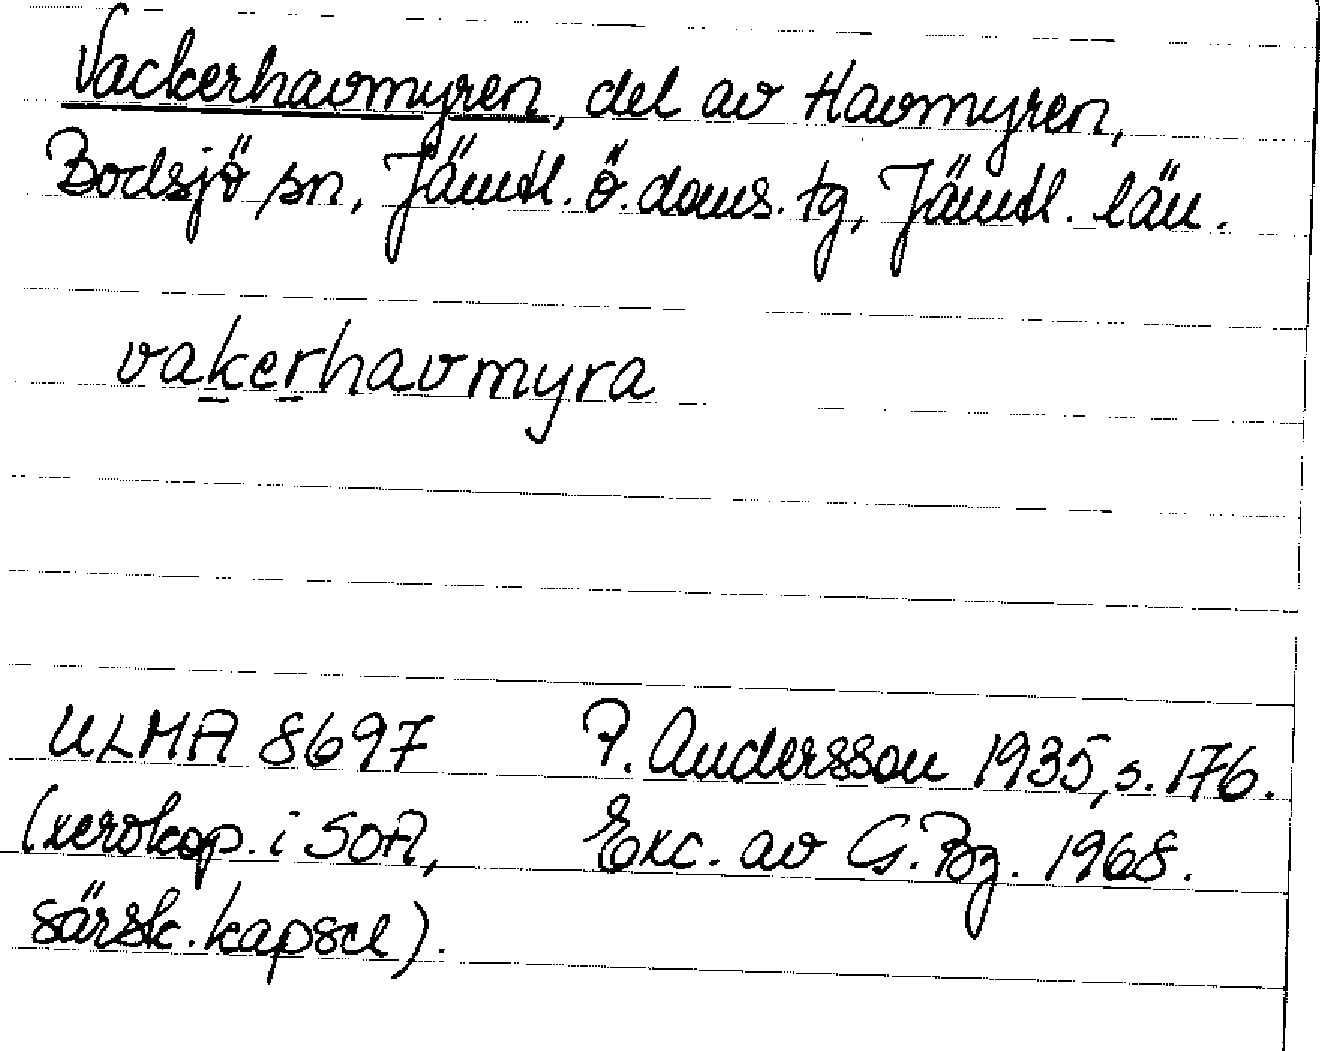 Vackerhavmyren, del av Havmyren,
Bodsjö sn, Jämtl. ö. doms. tg, Jämtl. län.
vakerhavmyra
ULMA 8697 P. Andersson 1935, s. 176.
(xerokop. i SOA, Exc. av G. Bg. 1968.
särsk. kapsel).